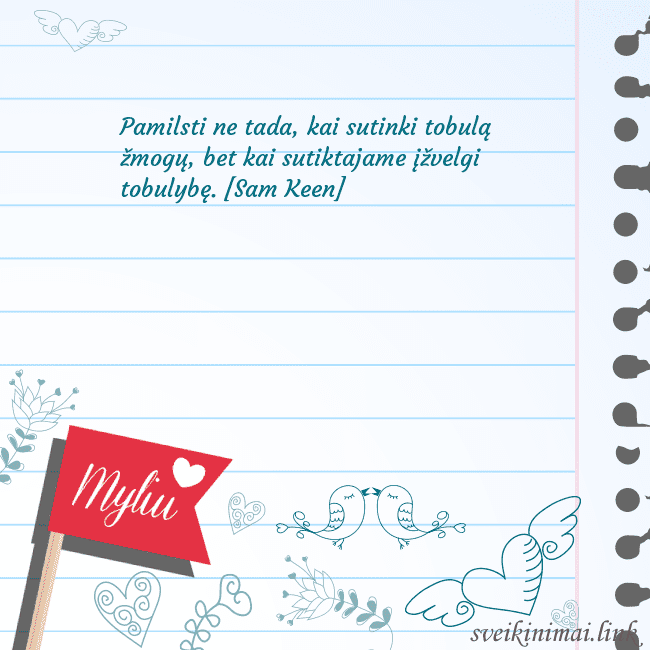 Pamilsti ne tada, kai sutinki tobulą
žmogų, bet kai sutiktajame įžvelgi
tobulybę. [Sam Keen]
Myliu
sveikinimai.link